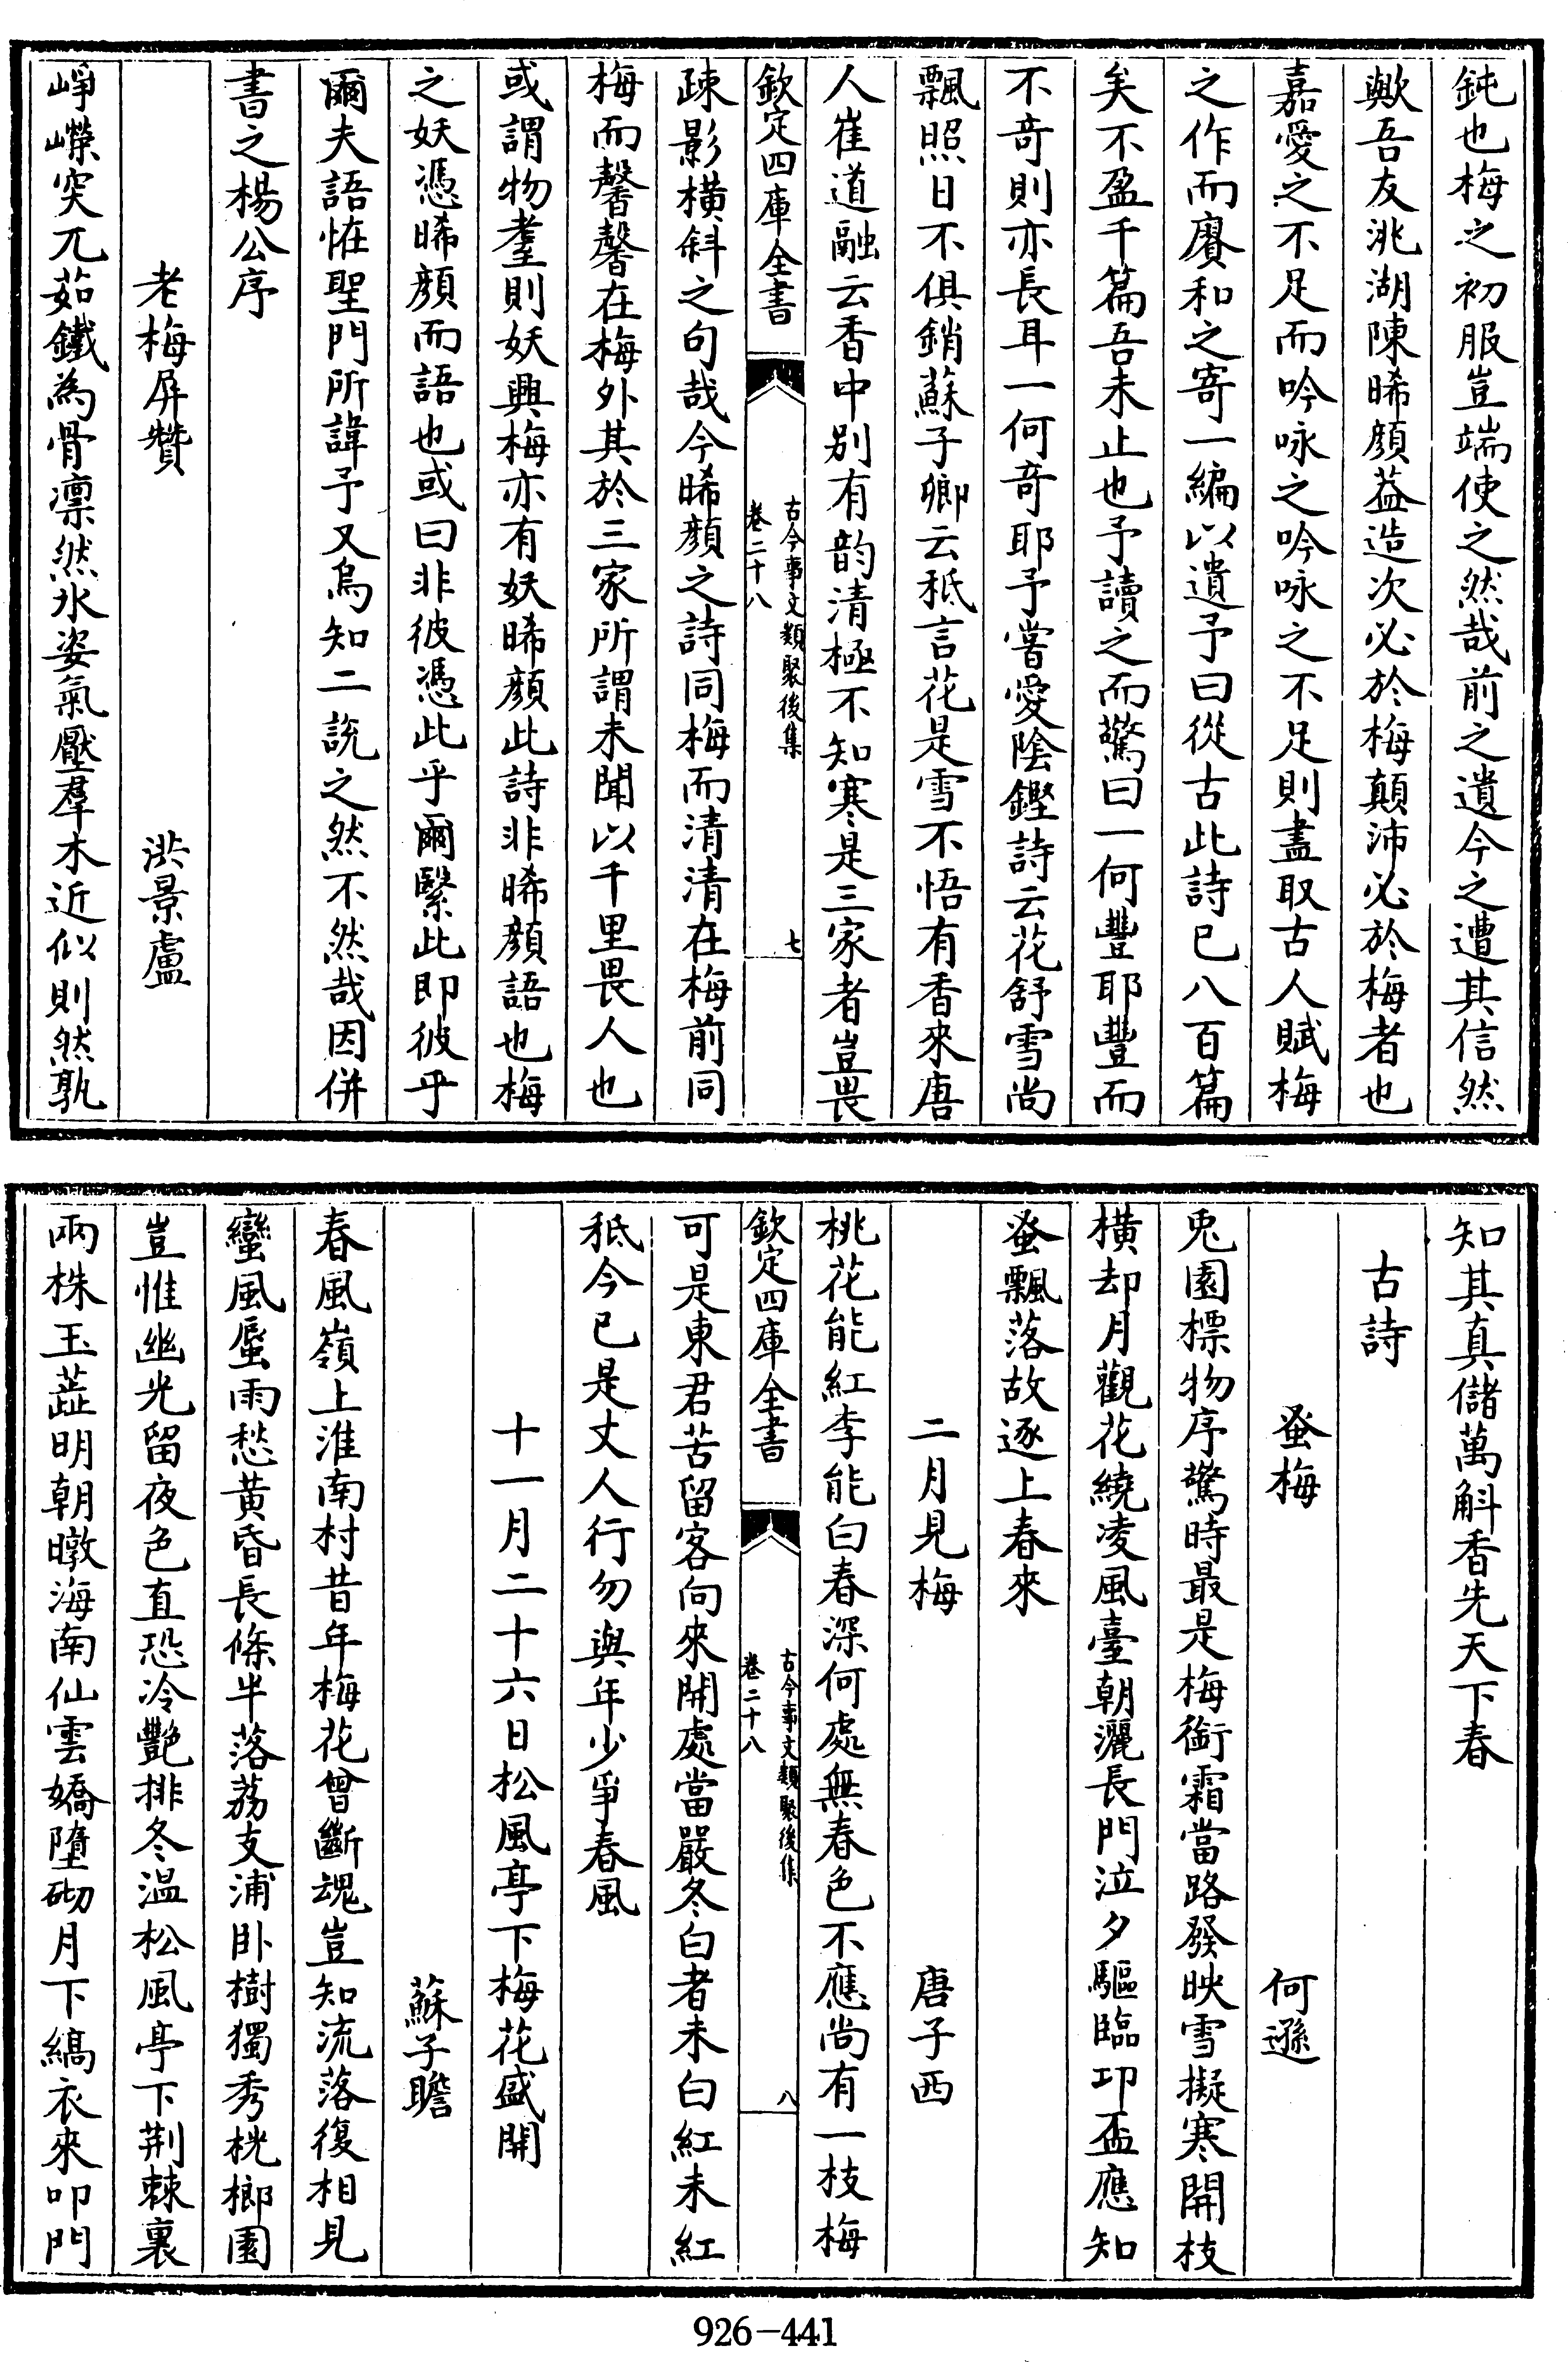 鈍也梅之初服豈端使之然哉前之遺今之遭其信然
歟吾友洮湖陳晞顔葢造次必於梅顛沛必於梅者也
嘉愛之不足而吟咏之吟咏之不足則盡取古人賦梅
之作而賡和之寄一編以遺予曰從古此詩已八百篇
矣不盈千篇吾未止也予讀之而驚曰一何豐耶豐而
不竒則亦長耳一何竒耶予嘗愛隂鏗詩云花舒雪尚
飄照日不俱銷蘇子卿云秪言花是雪不悟有香來唐
人崔道融云香中别有韵清極不知寒是三家者豈畏
欽定四庫全書 古今事文類聚後集 卷二十八 七
疎影橫斜之句哉今晞顔之詩同梅而清清在梅前同
梅而馨馨在梅外其於三家所謂未聞以千里畏人也
或謂物耋則妖興梅亦有妖晞顔此詩非晞顔語也梅
之妖憑晞顔而語也或曰非彼憑此乎爾繄此即彼乎
爾夫語恠聖門所諱予又烏知二説之然不然哉因併
書之楊公序
老梅屏贊 洪景盧
崢嶸突兀茹鐵為骨凛然氷姿氣壓羣木近似則然孰
知其真儲萬斛香先天下春
古詩
蚤梅 何遜
兎園標物序驚時最是梅銜霜當路發映雪擬寒開枝
橫却月觀花繞凌風臺朝灑長門泣夕驅臨卭盃應知
蚤飄落故逐上春來
二月見梅 唐子西
桃花能紅李能白春深何處無春色不應尚有一枝梅
欽定四庫全書 古今事文類聚後集 卷二十八 八
可是東君苦留客向來開處當嚴冬白者未白紅未紅
秪今已是丈人行勿與年少爭春風
十一月二十六日松風亭下梅花盛開
蘇子瞻
春風嶺上淮南村昔年梅花曾斷魂豈知流落復相見
蠻風蜑雨愁黄昏長條半落荔支浦卧樹獨秀桄榔園
豈惟幽光留夜色直恐冷艶排冬温松風亭下荆棘裏
兩株玉蕋明朝暾海南仙雲嬌墮砌月下縞衣來叩門
926-441